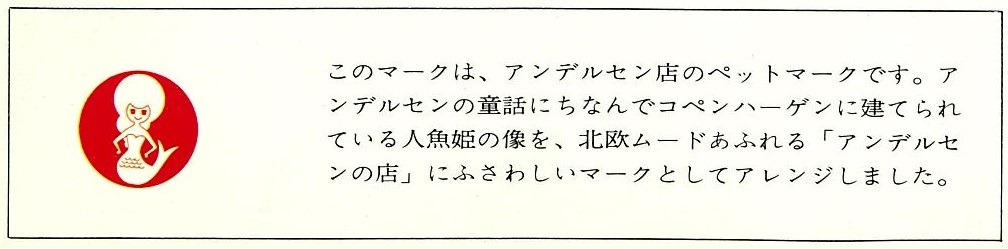 このマークは、アンデルセン店のペットマークです。ア
ンデルセンの童話にちなんでコペンハーゲンに建てられ
ている人魚姫の像を、北欧ムードあふれる「アンデルセ
ンの店」にふさわしいマークとしてアレンジしました。